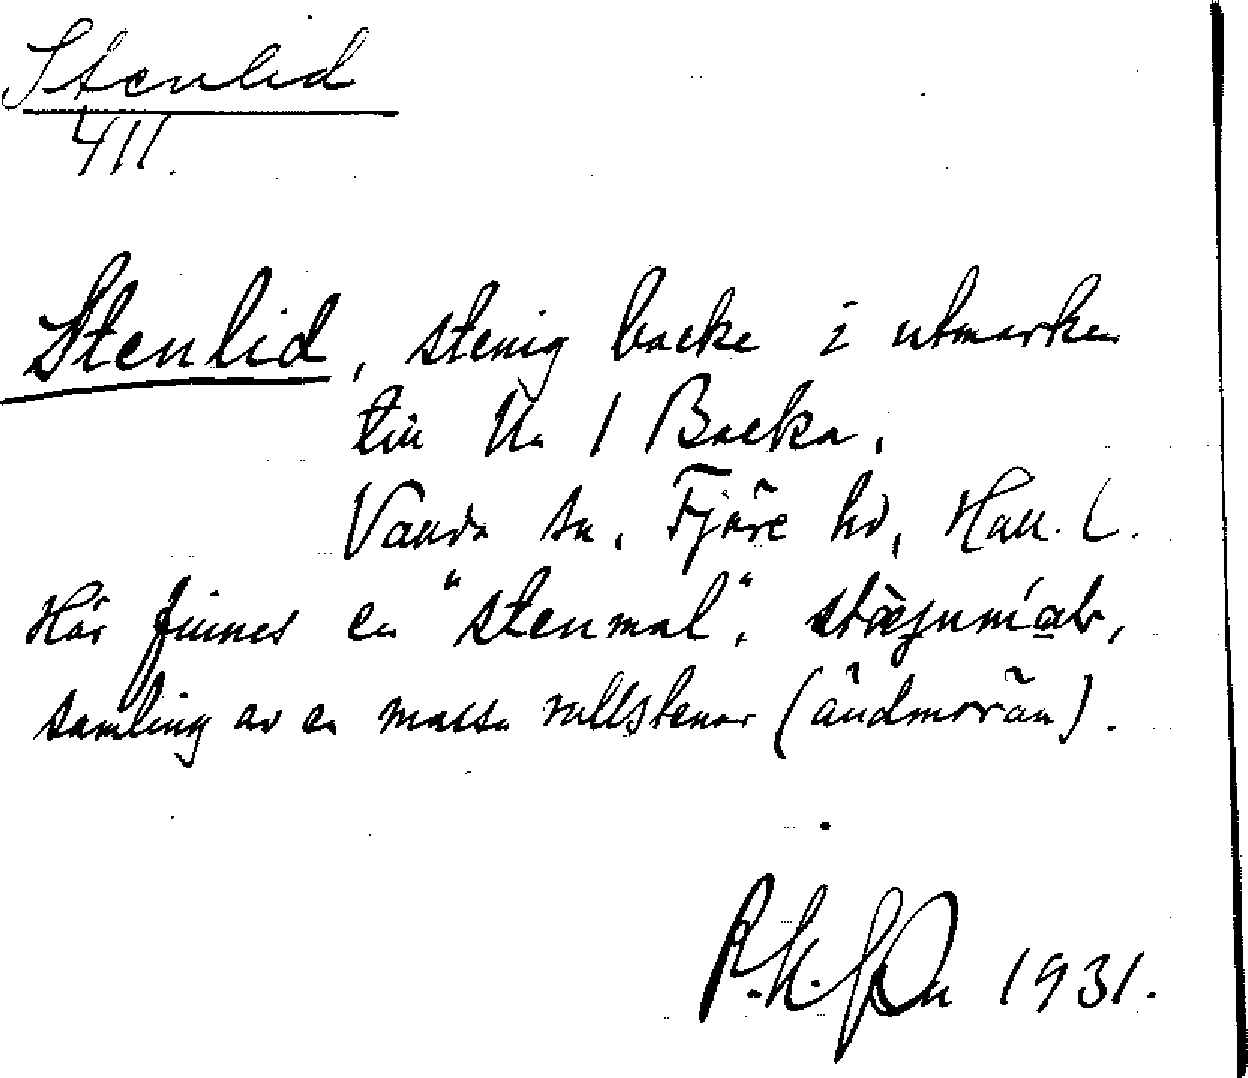 Stenlid
411.
Stenlid, stenig backe i utmarken
till N:o 1 Backa.
Vallda sn. Fjäre hd, Hall. l.
Här finnes en "stenmal".
samling av en massa rullstenar (ändmorän).
1931.